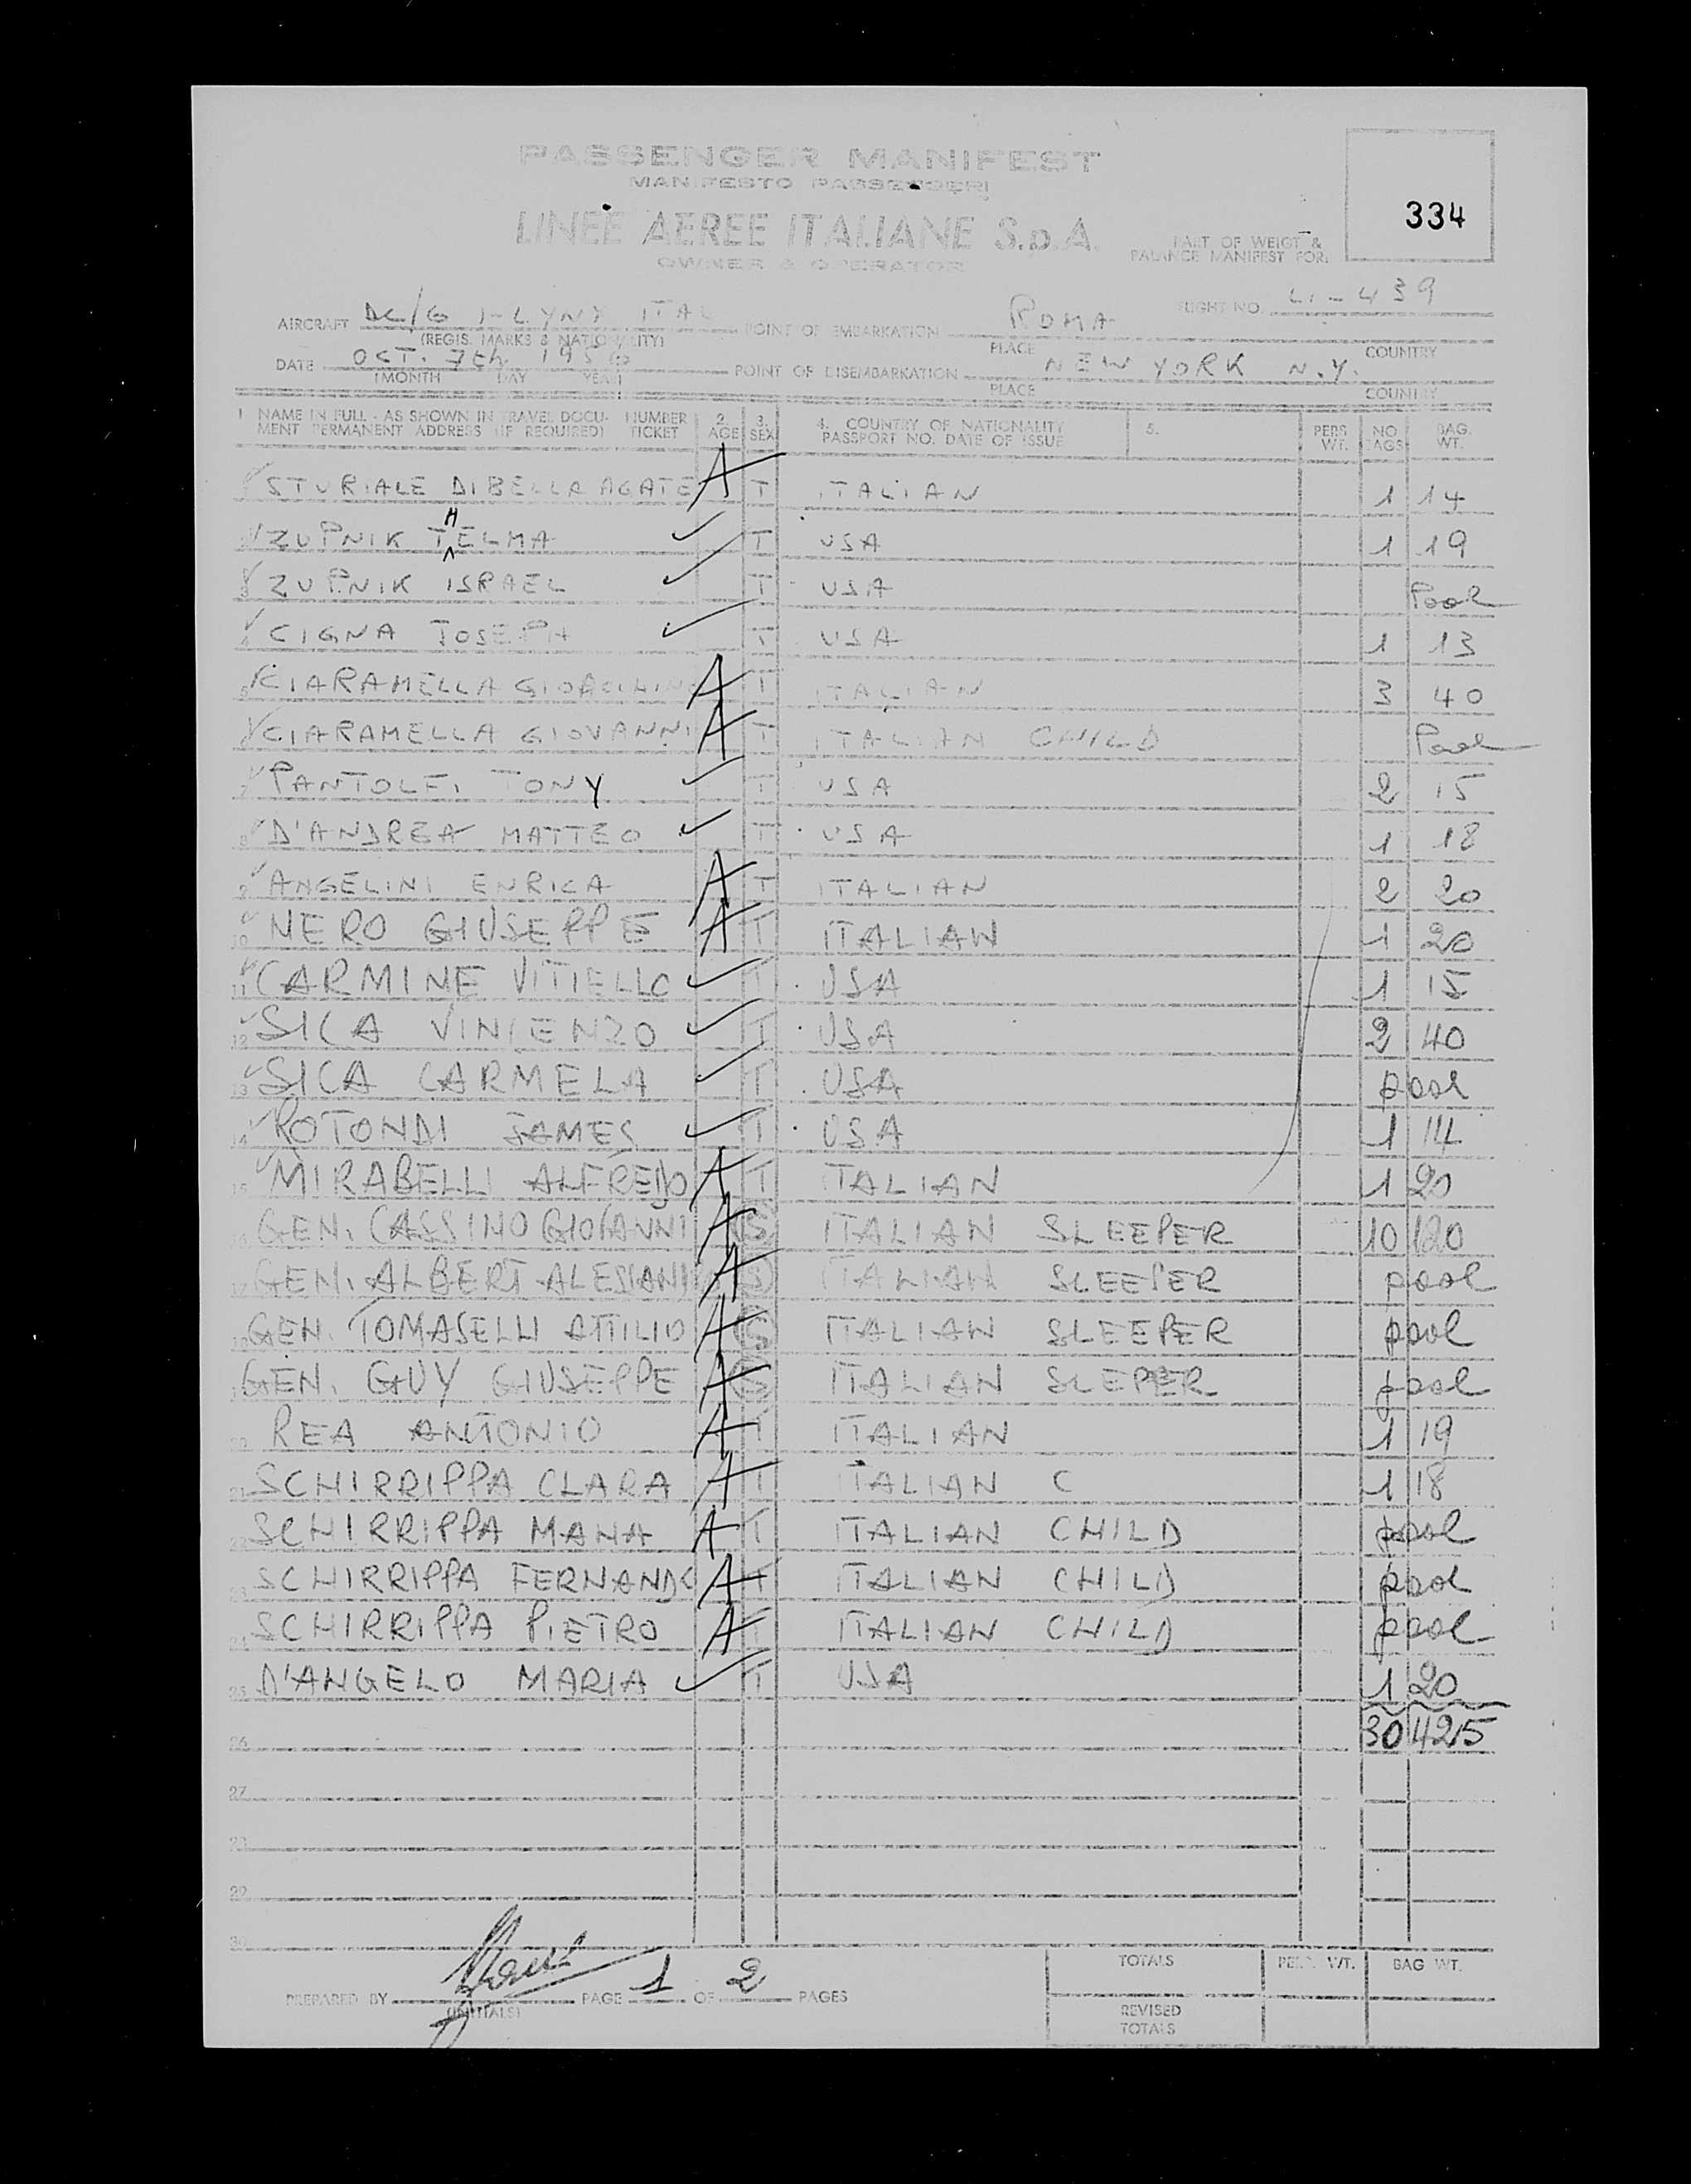 PASSENGER MANIFEST
MANIFESTO PASSEGGERI
LINEE AEREE ITALIANE S.p.A.
OWNER & OPERATOR
334
PART OF WEIGT &
BALANCE MANIFEST FOR:
FLIGHT NO. LI-439
AIRCRAFT DC/6 I-LYNX ITAL POINT OF EMBARKATION ROMA
(REGIS. MARKS & NATIONALITY) PLACE COUNTRY
DATE OCT. 7th 1956 POINT OF DISEMBARKATION NEW YORK N.Y.
(MONTH DAY YEAR) PLACE COUNTRY
1 NAME IN FULL - AS SHOWN IN TRAVEL DOCU- NUMBER 2. 3. 4. COUNTRY OF NATIONALITY 5. PERS. NO. BAG.
MENT PERMANENT ADDRESS (IF REQUIRED) TICKET AGE SEX PASSPORT NO. DATE OF ISSUE WT. BAGS WT.
1 STURIALE DIBELLA AGATE A T ITALIAN 1 14
H
2 ZUPNIK T^ELMA ✓ T USA 1 19
3 ZUPNIK ISRAEL ✓ T USA Pool
4 CIGNA JOSEPH ✓ T USA 1 13
5 CIARAMELLA GIOACCHINO A T ITALIAN 3 40
6 CIARAMELLA GIOVANNI A T ITALIAN CHILD Pool
7 PANTOLFI TONY ✓ T USA 2 15
8 D'ANDREA MATTEO ✓ T USA 1 18
9 ANGELINI ENRICA A T ITALIAN 2 20
10 NERO GIUSEPPE A T ITALIAN 1 20
11 CARMINE VITIELLO ✓ T USA 1 15
12 SICA VINCENZO ✓ T USA 2 40
13 SICA CARMELA ✓ T USA pool
14 ROTONDI JAMES ✓ T USA 1 14
15 MIRABELLI ALFREDO A T ITALIAN 1 20
16 GEN. CASSINO GIOVANNI A S ITALIAN SLEEPER 10 120
17 GEN. ALBERT ALESSAN A S ITALIAN SLEEPER pool
18 GEN. TOMASELLI ATTILIO A S ITALIAN SLEEPER pool
19 GEN. GUY GIUSEPPE A S ITALIAN SLEPER pool
20 REA ANTONIO A T ITALIAN 1 19
21 SCHIRRIPPA CLARA A T ITALIAN C 1 18
22 SCHIRRIPPA MANA A T ITALIAN CHILD pool
23 SCHIRRIPPA FERNANDO A T ITALIAN CHILD pool
24 SCHIRRIPPA PIETRO A T ITALIAN CHILD pool
25 D'ANGELO MARIA ✓ T USA 1 20
26 30 425
27
28
29
30
TOTALS PERS. WT. BAG WT.
PREPARED BY PAGE 1 OF 2 PAGES
(INITIALS)
REVISED
TOTALS